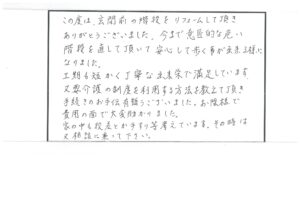 この度は、玄関前の階段をリフォームして頂き
ありがとうございました。今まで
階段を直して頂いて安心して歩く事が出来る様に
なりました。
工期も短かく丁寧な出来栄で満足しています。
又要介護の制度を利用する方法を教えて頂き
手続きのお手伝有難うございました。お陰様で
費用の面で大変助かりました。
家の中も段差とか手すり等考えています。その時は
又相談に乗って下さい。